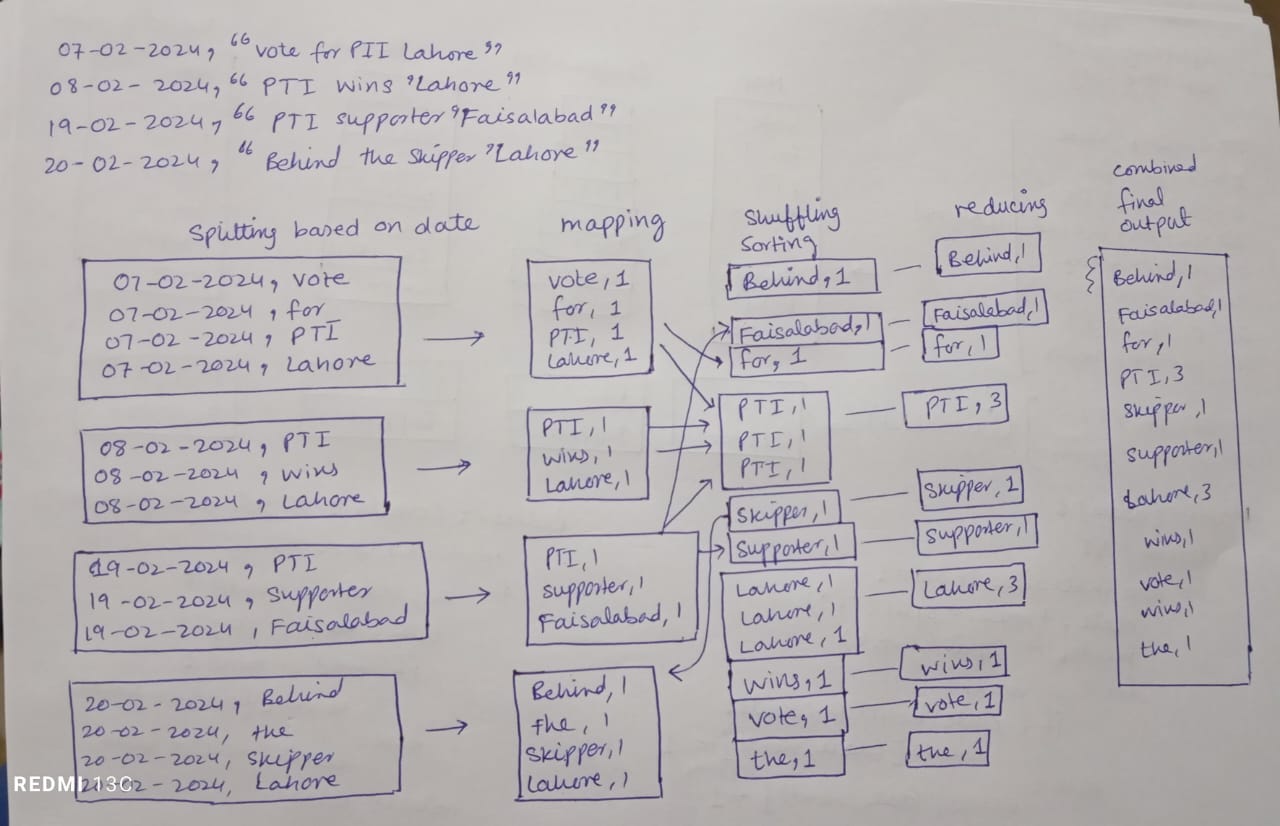 07-02-2024, “vote for PII Lahore”
08-02-2024, “PTI wins "Lahore”
19-02-2024, “PTI supporter "Faisalabad”
20-02-2024, “Behind the Skipper "Lahore”
Splitting based on date
07-02-2024, vote
07-02-2024, for
07-02-2024, PTI
07-02-2024, Lahore
08-02-2024, PTI
08-02-2024, wins
08-02-2024, Lahore
19-02-2024, PTI
19-02-2024, Supporter
19-02-2024, Faisalabad
20-02-2024, Behind
20-02-2024, the
20-02-2024, Skipper
20-02-2024, Lahore
mapping
vote, 1
for, 1
PTI, 1
Lahore, 1
PTI, 1
wins, 1
Lahore, 1
PTI, 1
supporter, 1
Faisalabad, 1
Behind, 1
the, 1
Skipper, 1
Lahore, 1
Shuffling
Sorting
Behind, 1
Faisalabad, 1
for, 1
PTI, 1
PTI, 1
PTI, 1
Skipper, 1
Supporter, 1
Lahore, 1
Lahore, 1
Lahore, 1
wins, 1
vote, 1
the, 1
reducing
Behind, 1
Faisalabad, 1
for, 1
PTI, 3
Skipper, 1
Supporter, 1
Lahore, 3
wins, 1
vote, 1
the, 1
combined
final
output
Behind, 1
Faisalabad, 1
for, 1
PTI, 3
Skipper, 1
supporter, 1
Lahore, 3
wins, 1
vote, 1
wins, 1
the, 1
REDMI 13C